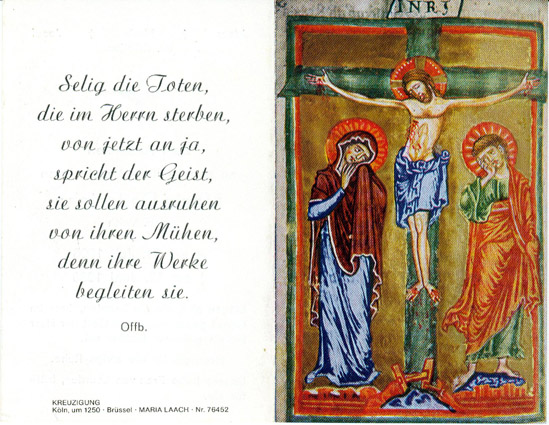 Selig die Toten,
die im Herrn sterben,
von jetzt an ja,
spricht der Geist,
sie sollen ausruhen
von ihren Mühen,
denn ihre Werke
begleiten sie.
Offb.
KREUZIGUNG
Köln, um 1250 · Brüssel · MARIA LAACH · Nr. 76452
INRS